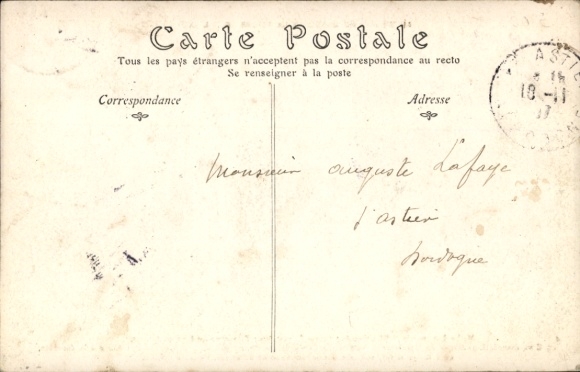 Carte Postale
Tous les pays étrangers n'acceptent pas la correspondance au recto
Se renseigner à la poste
Correspondance
Adresse
ASTIE
18-11
Monsieur Auguste Lafaye
d'astier
Dordogne